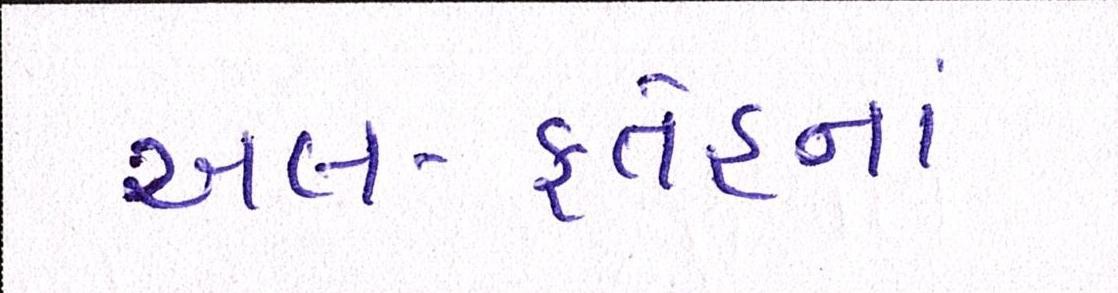 અલ-ફતેહનાં